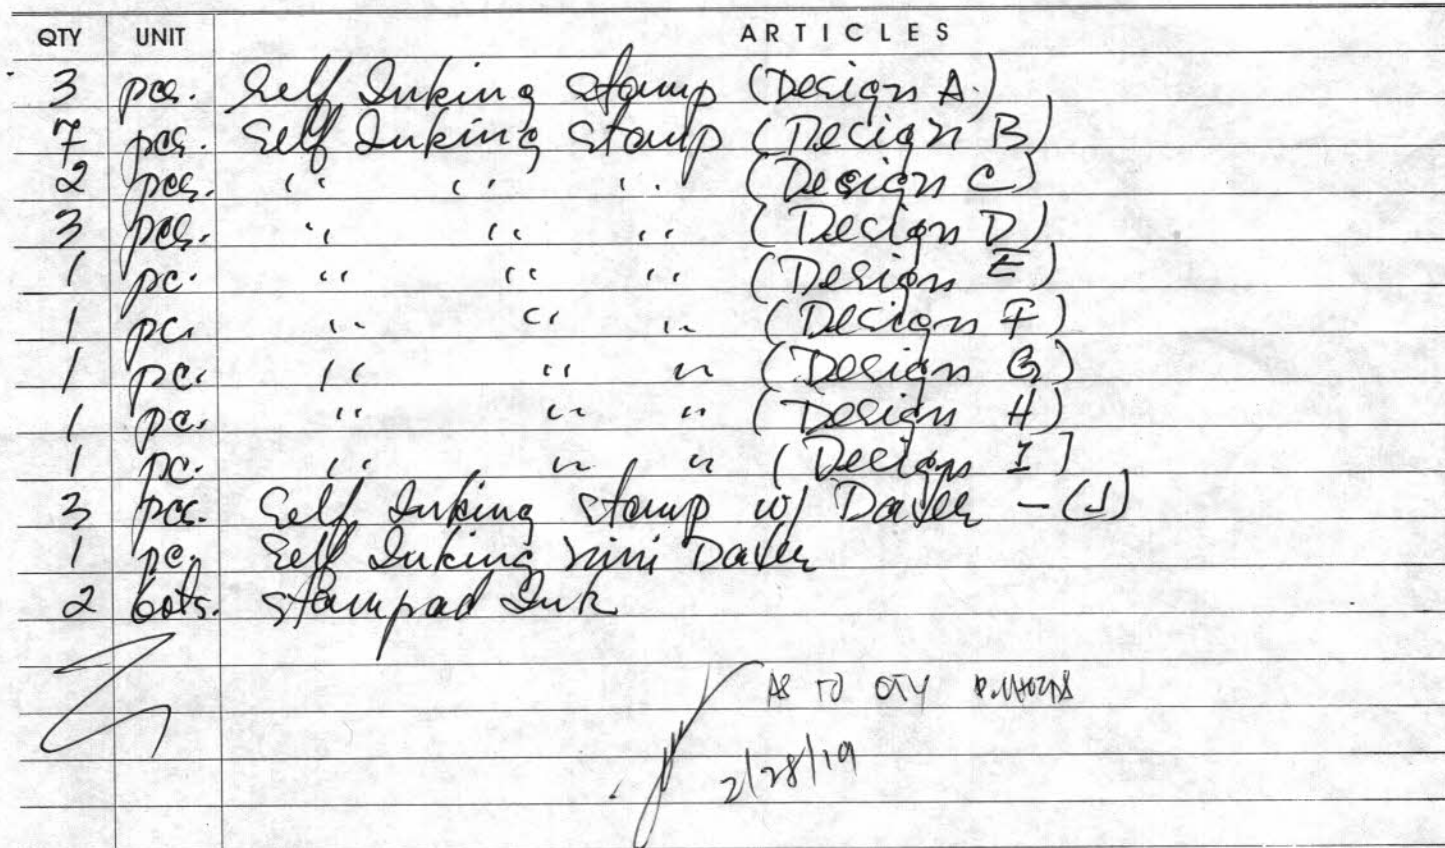 QTY UNIT ARTICLES
3 pcs. Self Inking Stamp (Design A)
7 pcs. Self Inking Stamp (Design B)
2 pcs. " " " (Design C)
3 pcs. " " " (Design D)
1 pc. " " " (Design E)
1 pc. " " " (Design F)
1 pc. " " " (Design G)
1 pc. " " " (Design H)
1 pc. " " " (Design I)
3 pcs. Self Inking Stamp w/ Dater - (J)
1 pc. Self Inking Mini Dater
2 bots. Stampad Ink
AS TO QTY
2/28/19